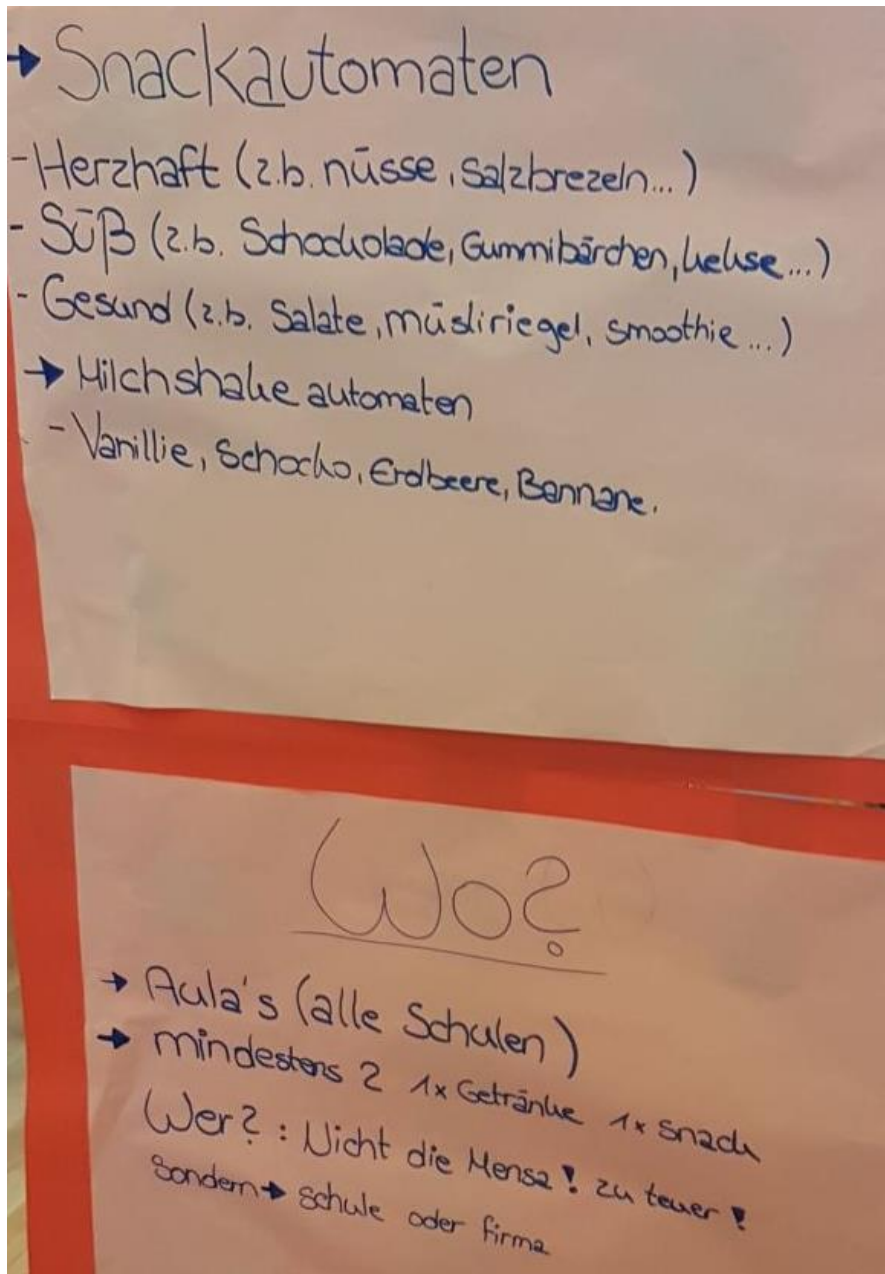 → Snackautomaten
- Herzhaft (z.b. nüsse, Salzbrezeln...)
- Süß (z.b. Schockolade, Gummibärchen, kekse...)
- Gesund (z.b. Salate, müsliriegel, smoothie...)
→ Milchshake automaten
- Vanillie, Schocko, Erdbeere, Bannane.
Wo?
→ Aula's (alle Schulen)
→ mindestens 2 1x Getränke 1x Snack
Wer?: Nicht die Mensa! zu teuer!
Sondern → schule oder firma